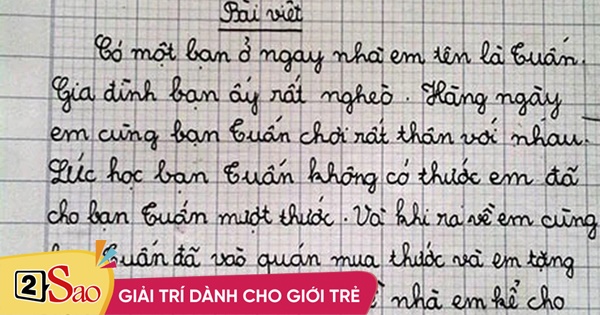 Bài viết
Có một bạn ở ngay nhà em tên là Tuấn.
Gia đình bạn ấy rất nghèo. Hàng ngày
em cùng bạn Tuấn chơi rất thân với nhau.
Lúc học bạn Tuấn không có thước em đã
cho bạn Tuấn mượt thước. Và khi ra về em cùng
Tuấn đã vào quán mua thước và em tặng
nhà em kể cho
2Sao
GIẢI TRÍ DÀNH CHO GIỚI TRẺ